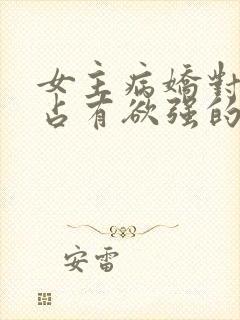 女主病嬌對
占有欲强的
安雷